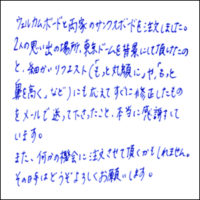 ウェルカムボードと両家のサンクスボードを注文しました。
2人の思い出の場所、東京ドームを背景にして頂いたの
と、細かいリクエスト(「もっと丸顔に」や、「もっと
鼻を高く」など)にも応えてすぐに修正したもの
をメールで送って下さったこと、本当に感謝して
います。
また、何かの機会に注文させて頂くかもしれません。
その時はどうぞよろしくお願いします。